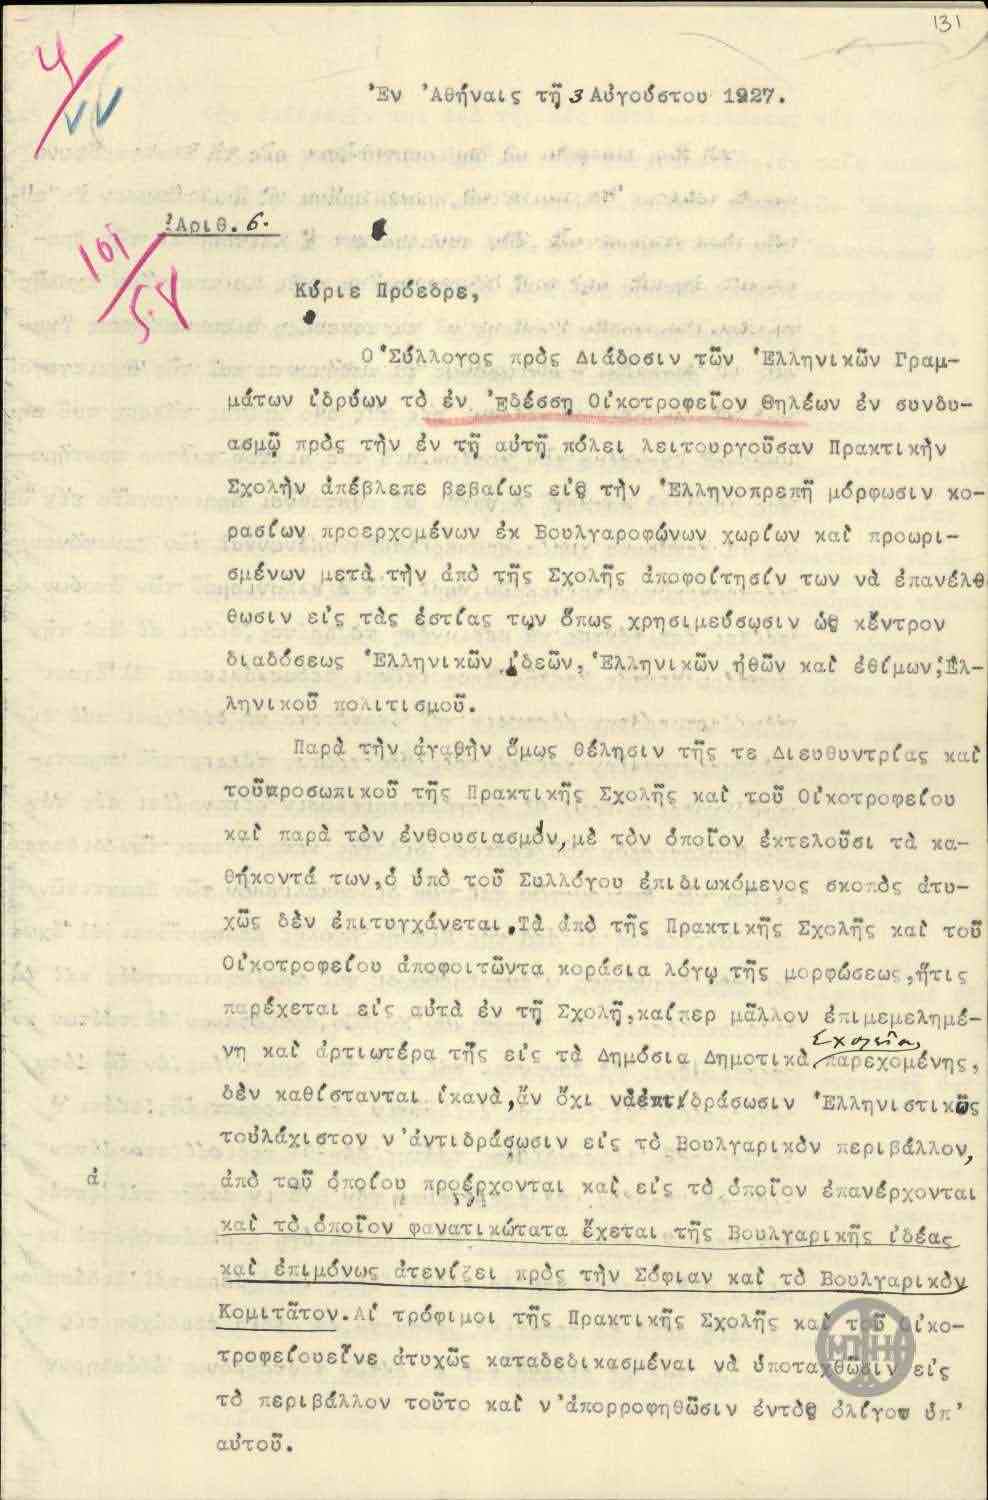 131
Ἐν Ἀθήναις τῇ 3 Αὐγούστου 1927.
Ἀριθ. 6.
101
58
Κύριε Πρόεδρε,
Ὁ Σύλλογος πρὸς Διάδοσιν τῶν Ἑλληνικῶν Γραμ-
μάτων ἱδρύων τὸ ἐν Ἐδέσσῃ Οἰκοτροφεῖον Θηλέων ἐν συνδυ-
ασμῷ πρὸς τὴν ἐν τῇ αὐτῇ πόλει λειτουργοῦσαν Πρακτικὴν
Σχολὴν ἀπέβλεπε βεβαίως εἰς τὴν Ἑλληνοπρεπῆ μόρφωσιν κο-
ρασίων προερχομένων ἐκ Βουλγαροφώνων χωρίων καὶ προωρι-
σμένων μετὰ τὴν ἀπὸ τῆς Σχολῆς ἀποφοίτησίν των νὰ ἐπανέλθ
θωσιν εἰς τὰς ἑστίας των ὅπως χρησιμεύσωσιν ὡς κέντρον
διαδόσεως Ἑλληνικῶν ἰδεῶν, Ἑλληνικῶν ἠθῶν καὶ ἐθίμων, Ἑλ-
ληνικοῦ πολιτισμοῦ.
Παρὰ τὴν ἀγαθὴν ὅμως θέλησιν τῆς τε Διευθυντρίας καὶ
τοῦ προσωπικοῦ τῆς Πρακτικῆς Σχολῆς καὶ τοῦ Οἰκοτροφείου
καὶ παρὰ τὸν ἐνθουσιασμόν, μὲ τὸν ὁποῖον ἐκτελοῦσι τὰ κα-
θήκοντά των, ὁ ὑπὸ τοῦ Συλλόγου ἐπιδιωκόμενος σκοπὸς ἀτυ-
χῶς δὲν ἐπιτυγχάνεται. Τὰ ἀπὸ τῆς Πρακτικῆς Σχολῆς καὶ τοῦ
Οἰκοτροφείου ἀποφοιτῶντα κοράσια λόγῳ τῆς μορφώσεως, ἥτις
παρέχεται εἰς αὐτὰ ἐν τῇ Σχολῇ, καίπερ μᾶλλον ἐπιμεμελημέ-
νη καὶ ἀρτιωτέρα τῆς εἰς τὰ Δημόσια Δημοτικὰ Σχολεῖα παρεχομένης,
δὲν καθίστανται ἱκανὰ, ἂν ὄχι νὰ ἐπιδράσωσιν Ἑλληνιστικῶς
τοὐλάχιστον ν'ἀντιδράσωσιν εἰς τὸ Βουλγαρικὸν περιβάλλον,
ἀπὸ τοῦ ὁποίου προέρχονται καὶ εἰς τὸ ὁποῖον ἐπανέρχονται
καὶ τὸ ὁποῖον φανατικώτατα ἔχεται τῆς Βουλγαρικῆς ἰδέας
καὶ ἐπιμόνως ἀτενίζει πρὸς τὴν Σόφιαν καὶ τὸ Βουλγαρικὸν
Κομιτᾶτον. Αἱ τρόφιμοι τῆς Πρακτικῆς Σχολῆς καὶ τοῦ Οἰκο-
τροφείου εἶνε ἀτυχῶς καταδεδικασμέναι νὰ ὑποταχθῶσιν εἰς
τὸ περιβάλλον τοῦτο καὶ ν'ἀπορροφηθῶσιν ἐντὸς ὀλίγου ὑπ'
αὐτοῦ.